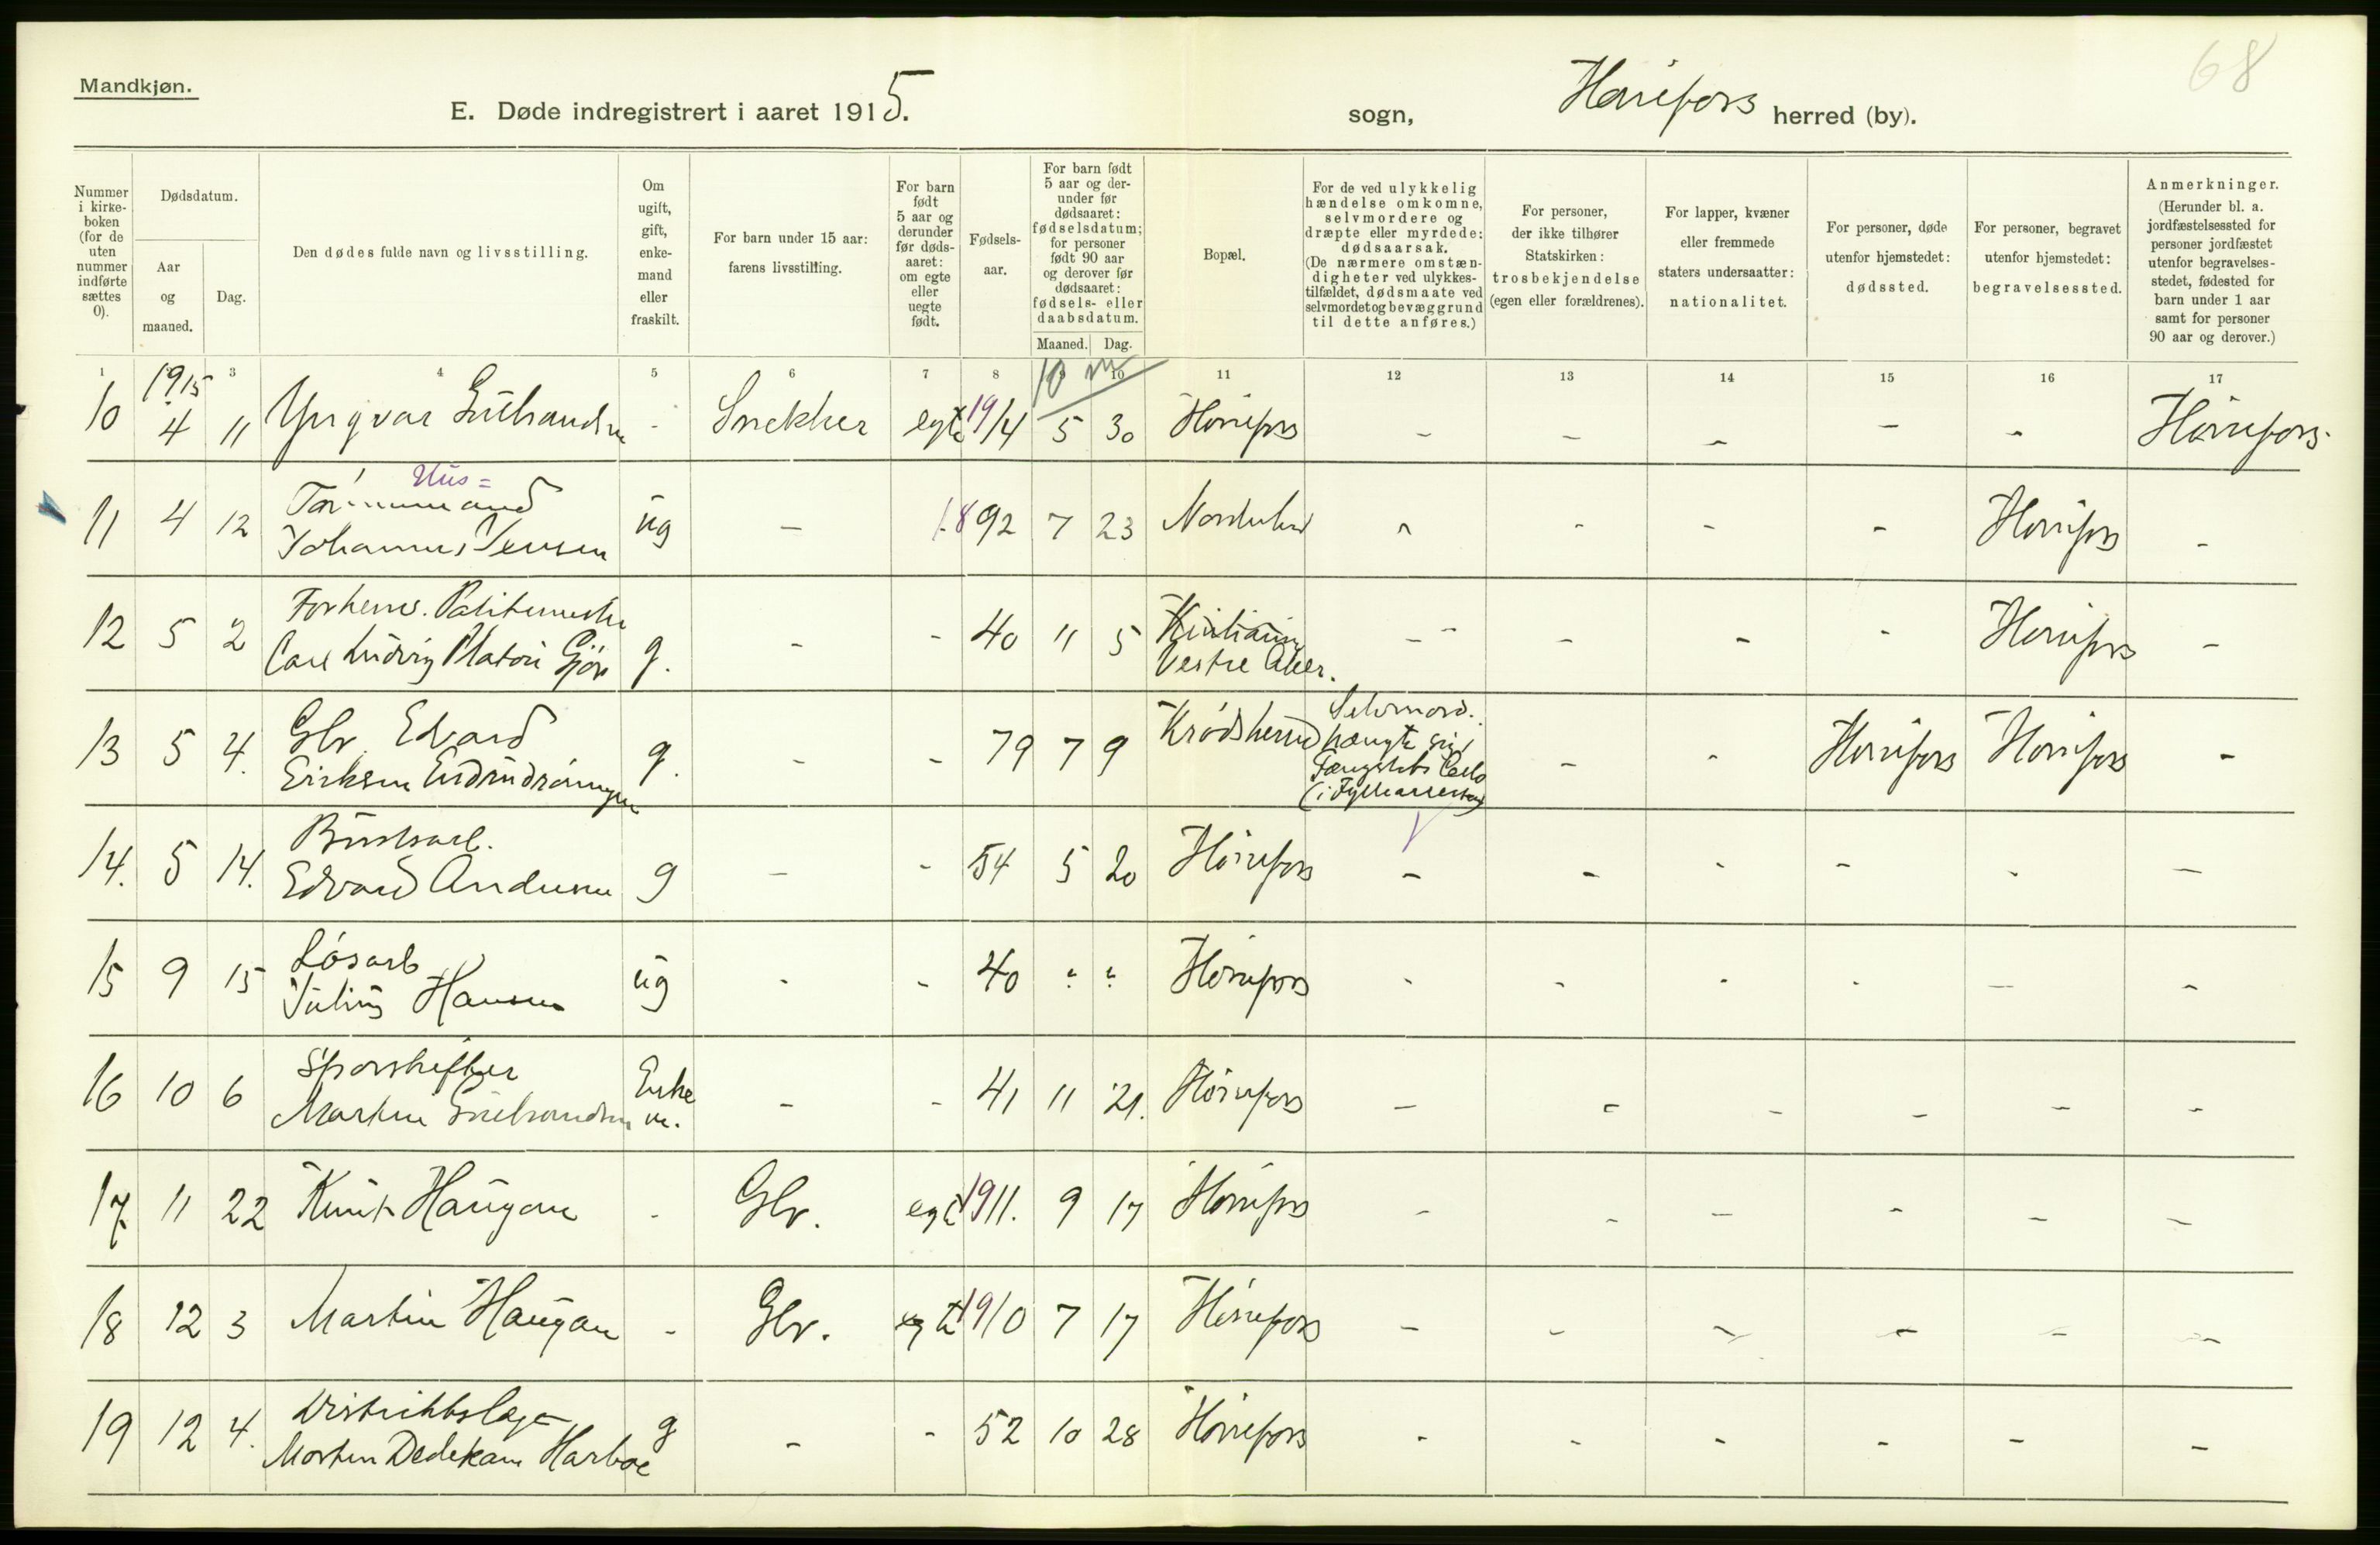 68
Mandkjøn.
E. Døde indregistrert i aaret 1915. sogn, Hønefoss herred (by).
Nummer i kirkeboken (for de uten nummer indførte sættes 0).
Dødsdatum.
Aar og maaned.
Dag.
Den dødes fulde navn og livsstilling.
Om ugift, gift, enkemand eller fraskilt.
For barn under 15 aar: farens livsstilling.
For barn født 5 aar og derunder før dødsaaret: om egte eller uegte født.
Fødselsaar.
For barn født 5 aar og derunder før dødsaaret: fødselsdatum; for personer født 90 aar og derover før dødsaaret: fødsels- eller daabsdatum.
Maaned. Dag.
Bopæl.
For de ved ulykkelig hændelse omkomne, selvmordere og dræpte eller myrdede: dødsaarsak. (De nærmere omstændigheter ved ulykkestilfældet, dødsmaate ved selvmordet og bevæggrund til dette anføres.)
For personer, der ikke tilhører Statskirken: trosbekjendelse (egen eller forældrenes).
For lapper, kvæner eller fremmede staters undersaatter: nationalitet.
For personer, døde utenfor hjemstedet: dødssted.
For personer, begravet utenfor hjemstedet: begravelsessted.
Anmerkninger. (Herunder bl. a. jordfæstelsessted for personer jordfæstet utenfor begravelsesstedet, fødested for barn under 1 aar samt for personer 90 aar og derover.)
1 3 4 5 6 7 8 9 10 11 12 13 14 15 16 17
1915 10 m
10 4 11 Yngvar Gulbrandsen - Snekker egte 19/4 5 30 Hønefos - - - - - Hønefoss.
Hus=
Tømmermand
11 4 12 Johannes Jensen ug - 1892 7 23 Norderhov - - - - Hønefos -
Forhenv. Politimester
12 5 2 Carl Ludvig Platou Gjør g. - - 40 11 5 Kristiania Vestre Aker. - - - - Hønefos -
13 5 4. Gbr. Edvard
Eriksen g. - - 79 7 9 Krødsherred Selvmord. hængte sig i Fængslets Celle (i Fyllearresten) - - Hønefoss Hønefoss -
Bruksarb.
14. 5 14. Edvard Andersen g - - 54 5 20 Hønefos - - - - - -
Løsarb
15 9 15 Julius Hansen ug - - 40 " " Hønefoss - - - - - -
Sporskifter
16 10 6 Martin Gulbrandsen Enke m. - - 41 11 21. Hønefoss - - - - - -
17 11 22 Knut Haugan - Gbr. egte 1911. 9 17 Hønefos - - - - - -
18 12 3 Martin Haugan - Gbr. egte 1910 7 17 Hønefoss - - - - - -
Distriktslæge
19 12 4. Morten Dedekam Harboe g - - 52 10 28 Hønefoss - - - - - -